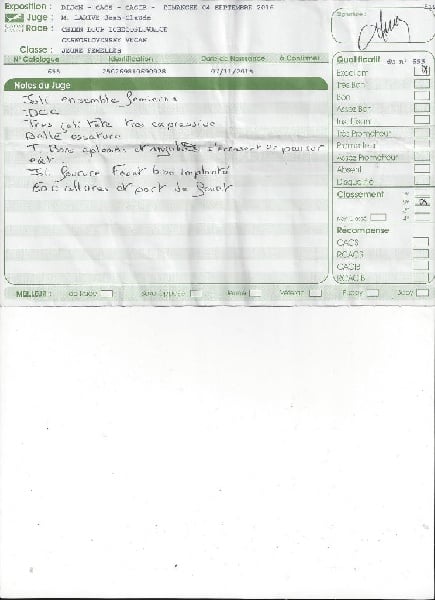 Exposition : DIJON - CACS - CACIB - DIMANCHE 04 SEPTEMBRE 2016
Signature :
Juge : M. LARIVE Jean-Claude
Race : CHIEN LOUP TCHECOSLOVAQUE
CESKOSLOVENSKY VLCAK
Classe : JEUNE FEMELLES
N° Catalogue Identification Date de Naissance A Confirmer
Qualificatif du n° 655
655
Excellent
Très Bon
Notes du Juge
Bon
Joli ensemble féminin
Assez Bon
Insuffisant
Très joli tête très expressive
Très Prometteur
Belle ossature
Prometteur
T. Bons aplombs et
Assez Prometteur
Absent
Joli fouet bien implanté
Disqualifié
Bon allures et port de fouet
Classement
Non Classé
Récompense
CACS
RCACS
CACIB
RCACIB
MEILLEUR : de Race Sexe Opposé Jeune Vétéran Puppy Baby